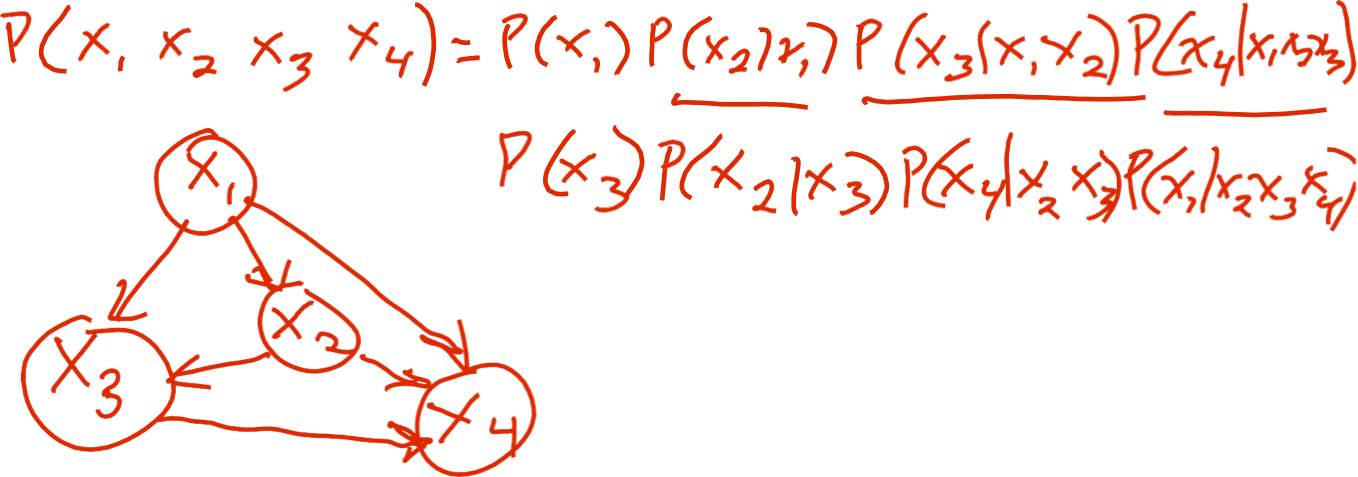 P(x₁ x₂ x₃ x₄) = P(x₁) P(x₂|x₁) P(x₃|x₁x₂) P(x₄|x₁x₂x₃)
P(x₃) P(x₂|x₃) P(x₄|x₂ x₃) P(x₁|x₂x₃x₄)
x₁
x₂
x₃
x₄